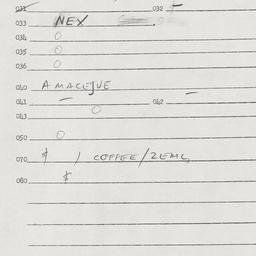 032 032
033 NEX
034 O
035 O
036 O
040 AMACEJVE
041 — O 042 —
043
050 O
070 $ / COFFEE/2EMG
080 $